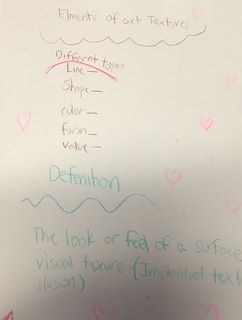 Elments of art Textures
Differnt types
Line —
Shape —
color —
form —
value —
Defenition
The look or feel of a surface
visual texure (Implanted text
ilusion)